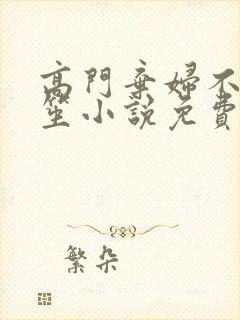 高門棄婦不
笙小說免費
繁朵